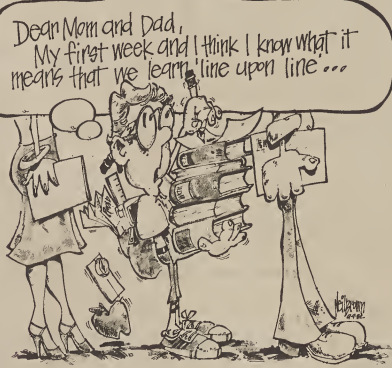 Dear Mom and Dad,
My first week and I think I know what it
means that we learn 'line upon line'...